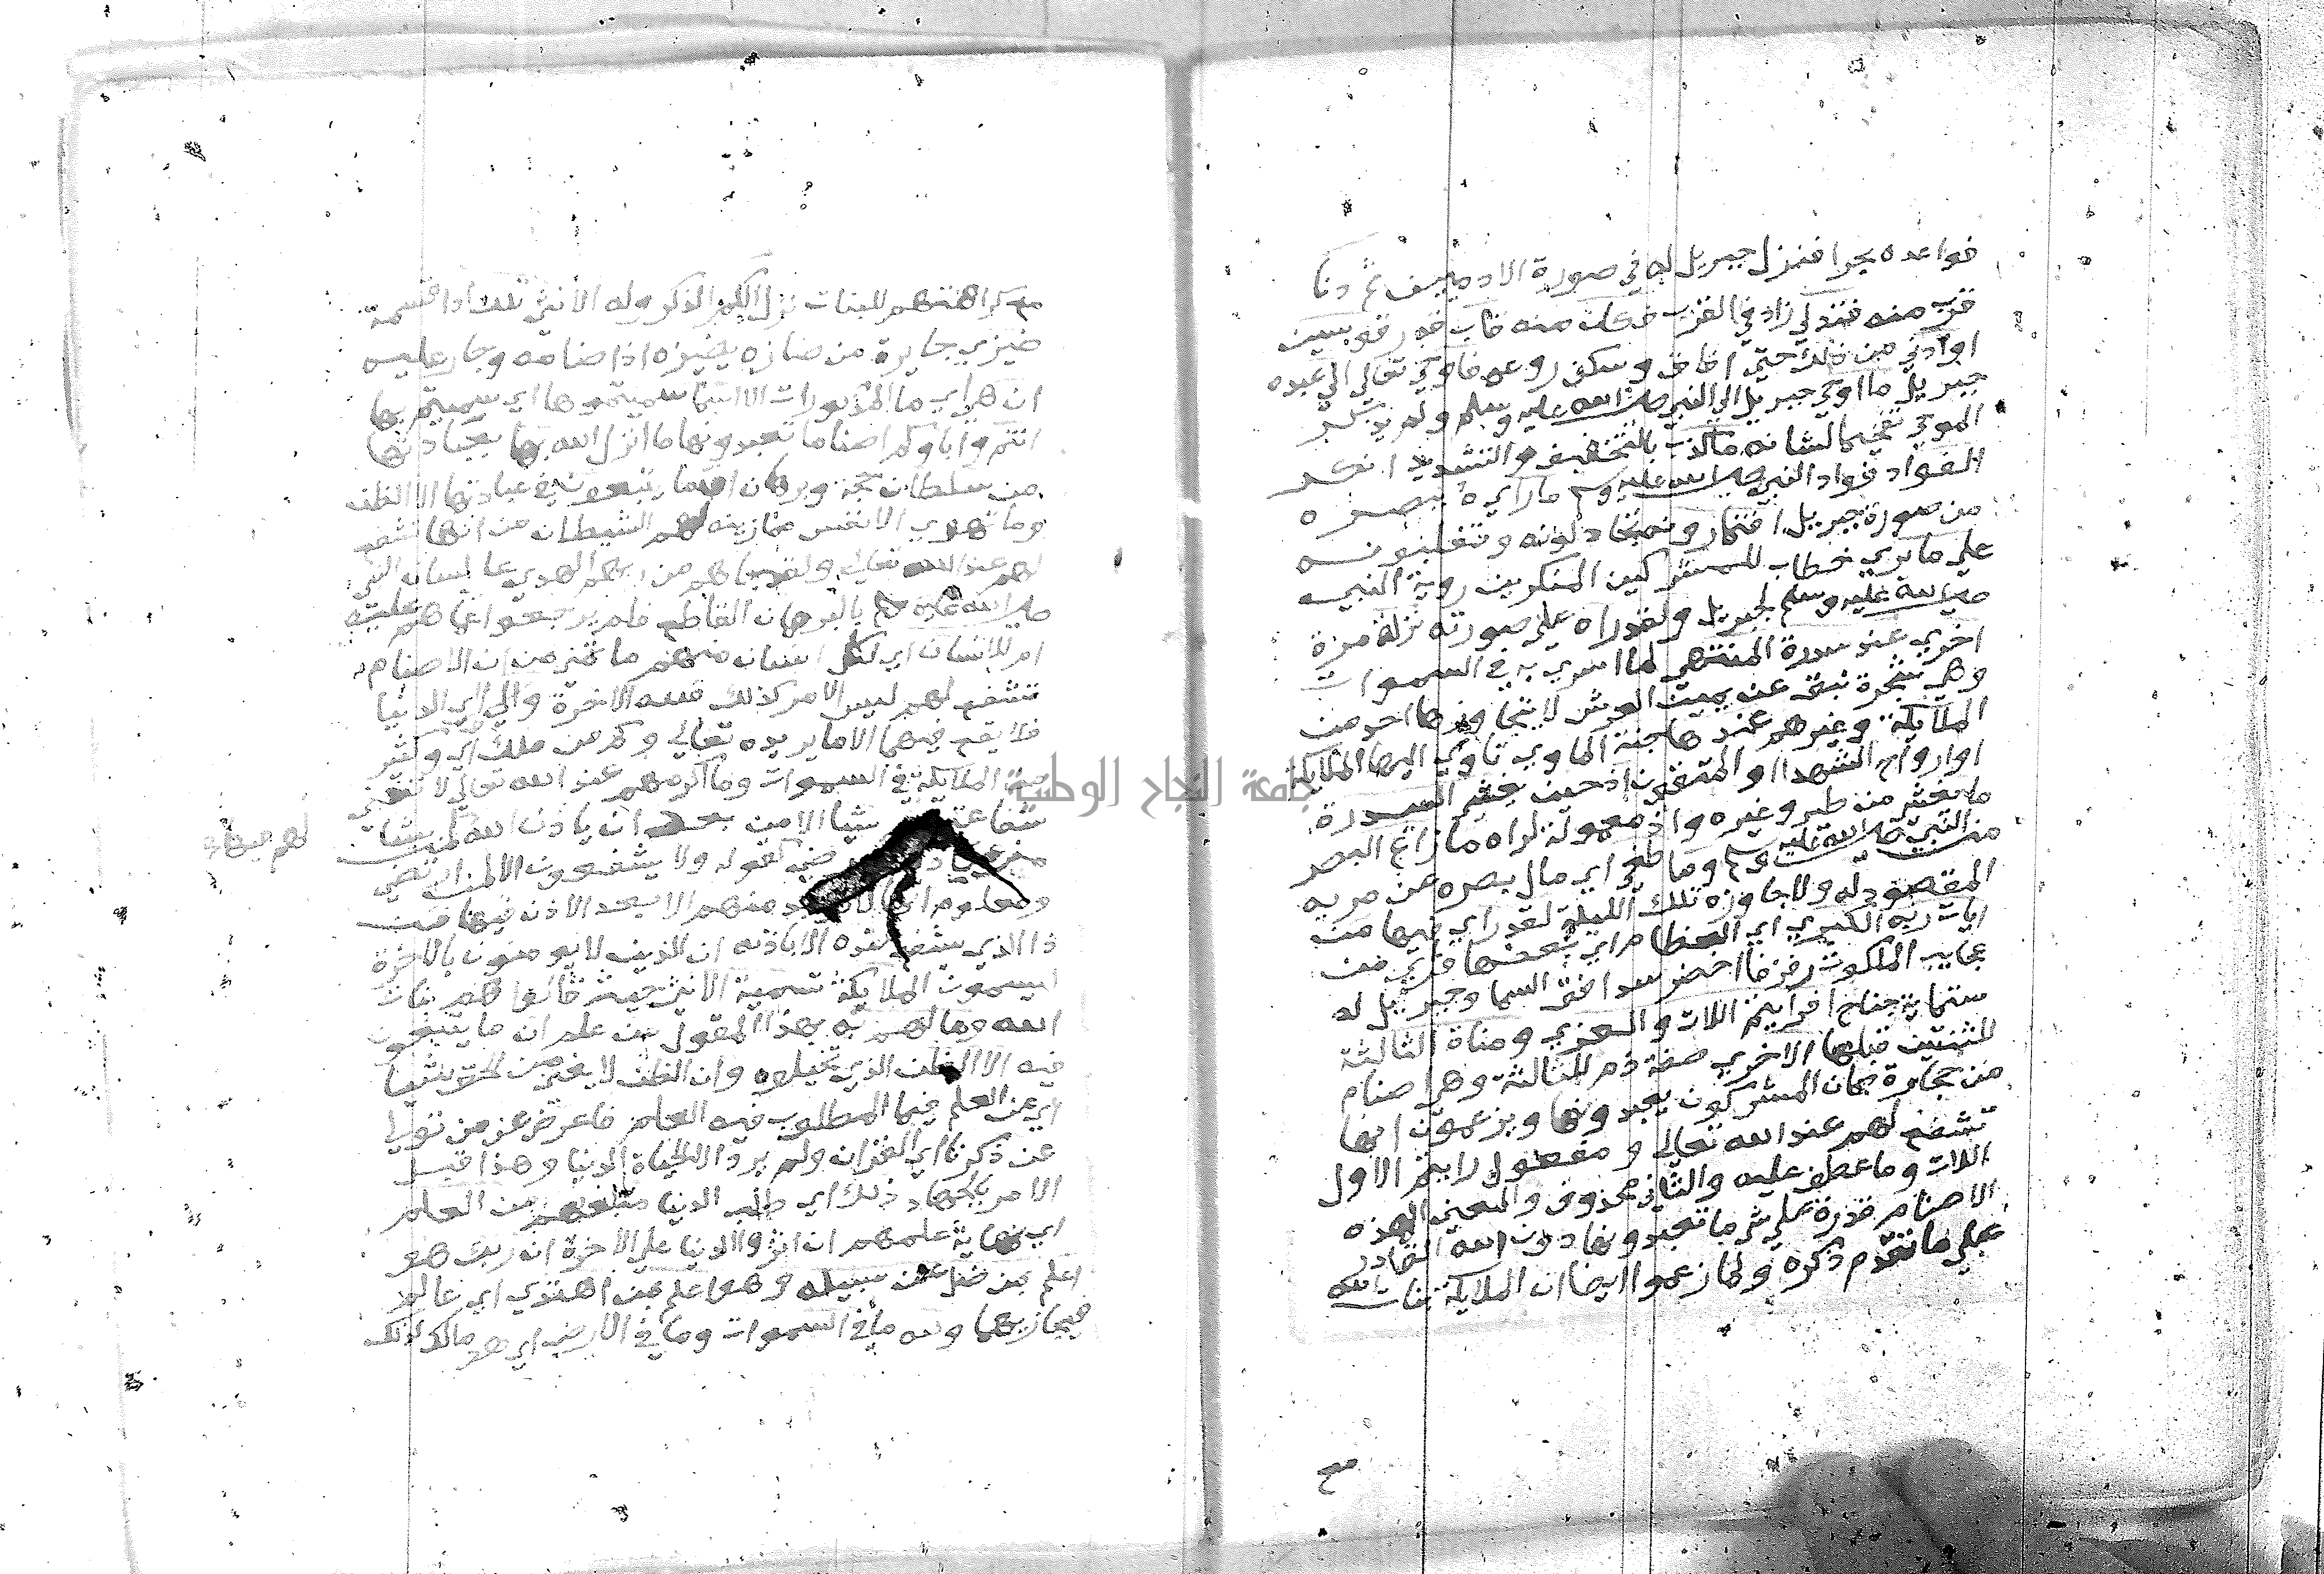 فواعده بحرا فنزل جبريل له في صورة الادميين ثم دنا
قرب منه فتدلي زاد في القرب فكان منه قاب قدر قوسين
او ادني من ذلك حتي افاق وسكن روعه فاوحي تعالي الي عبده
جبريل ما اوحي جبريل الي النبي صلي الله عليه وسلم ولم يذكر
الموحي تفخيما لشانه ما كذب بالتخفيف والتشديد انكر
الفواد فواد النبي صلي الله عليه وسلم ما راي ببصره
من صورة جبريل افتمارونه تجادلونه وتغلبونه
علي ما يري خطاب للمشركين المنكرين روية النبي
صلي الله عليه وسلم لجبريل ولقد راه علي صورته نزلة مرة
اخري عند سدرة المنتهي لما اسري به في السموات
وهي شجرة نبق عن يمين العرش لا يتجاوزها احد من
الملايكة وغيرهم عندها جنة الماوي تاوي اليها الملايكة
او ارواح الشهدا او المتقون اذ حين يغشي السدرة
ما يغشي من طير وغيره واذ معمولة لراه ما زاغ البصر
من النبي صلي الله عليه وسلم وما طغي اي مال بصره عن مريه
المقصود له ولا جاوزه تلك الليلة لقد راي فيها من
ايات ربه الكبري اي العظام اي بعضها فراي من
عجايب الملكوت رفرفا اخضر سد افق السما وجبريل له
ستماية جناح افرايتم اللات والعزي ومناة الثالثة
للثنتين قبلها الاخري صفة ذم للثالثة وهي اصنام
من حجارة كان المشركون يعبدونها ويزعمون انها
تشفع لهم عند الله تعالي ومفعول رايتم الاول
اللات وما عطف عليه والثاني محذوف والمعني الهذه
الاصنام قدرة علي شي ما تعبدونها دون الله القادر
علي ما تقدم ذكره ولما زعموا ايضا ان الملايكة بنات الله
مع كراهتهم للبنات نزل الكم الذكر وله الانثي تلك اذا قسمة
ضيزي جايرة من ضازه يضيزه اذا ضامه وجار عليه
ان هي اي ما المذكورات الا اسما سميتموها اي سميتم بها
انتم واباوكم اصناما تعبدونها ما انزل الله بها بعبادتها
من سلطان حجة وبرهان ان ما يتبعون في عبادتها الا الظن
وما تهوي الانفس مما زينه لهم الشيطان من انها تشفع
لهم عند الله تعالي ولقد جاهم من ربهم الهدي علي لسان النبي
صلي الله عليه وسلم بالبرهان القاطع فلم يرجعوا عما هم عليه
ام للانسان اي لكل انسان منهم ما تمني من ان الاصنام
تشفع لهم ليس الامر كذلك فلله الاخرة والاولي اي الدنيا
فلا يقع فيهما الا ما يريده تعالي وكم من ملك اي وكثير
من الملايكة في السموات وما اكرمهم عند الله تعالي لا تغني
شفاعتهم شيا الا من بعد ان ياذن الله لمن يشا
لهم فيها
من عباده ويرضي لقوله ولا يشفعون الا لمن ارتضي
ومعلوم انها لا توجد منهم الا بعد الاذن فيها من
ذا الذي يشفع عنده الا باذنه ان الذين لا يومنون بالاخرة
ليسمون الملايكة تسمية الانثي حيث قالوا هم بنات
الله وما لهم به بهذا المقول من علم ان ما يتبعون
فيه الا الظن الذي تخيلوه وان الظن لا يغني من الحق شيا
اي عن العلم فيما المطلوب فيه العلم فاعرض عن من تولي
عن ذكرنا اي القران ولم يرد الا الحياة الدنيا وهذا قبل
الامر بالجهاد ذلك اي طلب الدنيا مبلغهم من العلم
اي نهاية علمهم ان اثروا الدنيا علي الاخرة ان ربك هو
اعلم بمن ضل عن سبيله وهو اعلم بمن اهتدي اي عالم
فيجازيهما ولله ما في السموات وما في الارض اي هو مالك لذلك
جامعة النجاح الوطنية